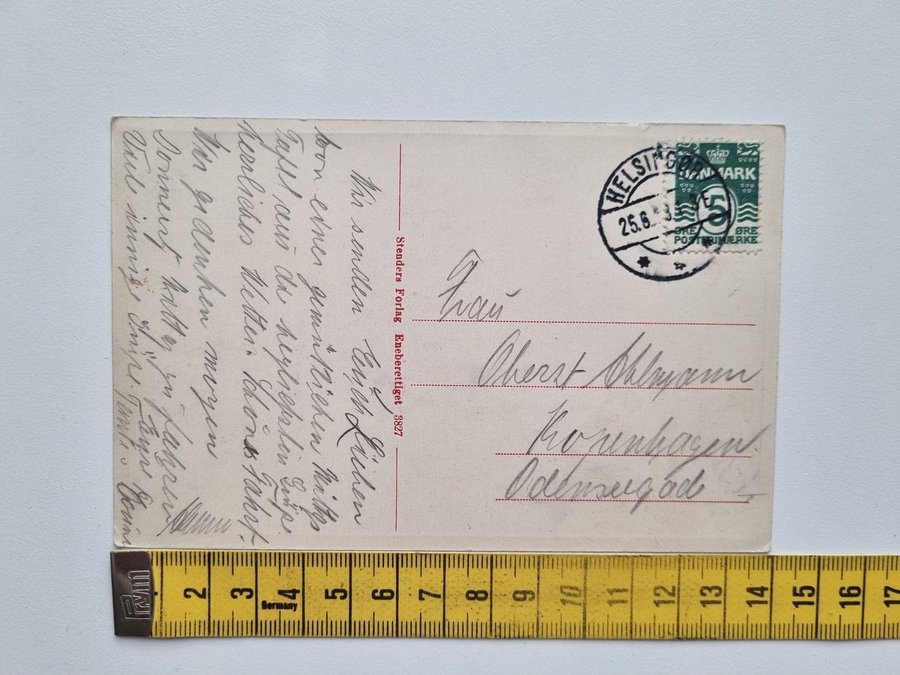 Wir senden Euch Lieben
von einer gemütlichen Mittags
Tafel aus die herzlichsten Grüße
Herrliches Wetter schöne Fahrt.
Wir gedenken morgen
Vormit nach zu fahren
Viele innige Grüße
Stenders Forlag Eneberettiget 3827
HELSINGØR
25.6.
DANMARK
5
ØRE ØRE
POSTFRIMÆRKE
Frau
Oberst Ahlmann
Kopenhagen
Odensegade
2 3 4 5 6 7 8 9 10 11 12 13 14 15 16 17
Germany